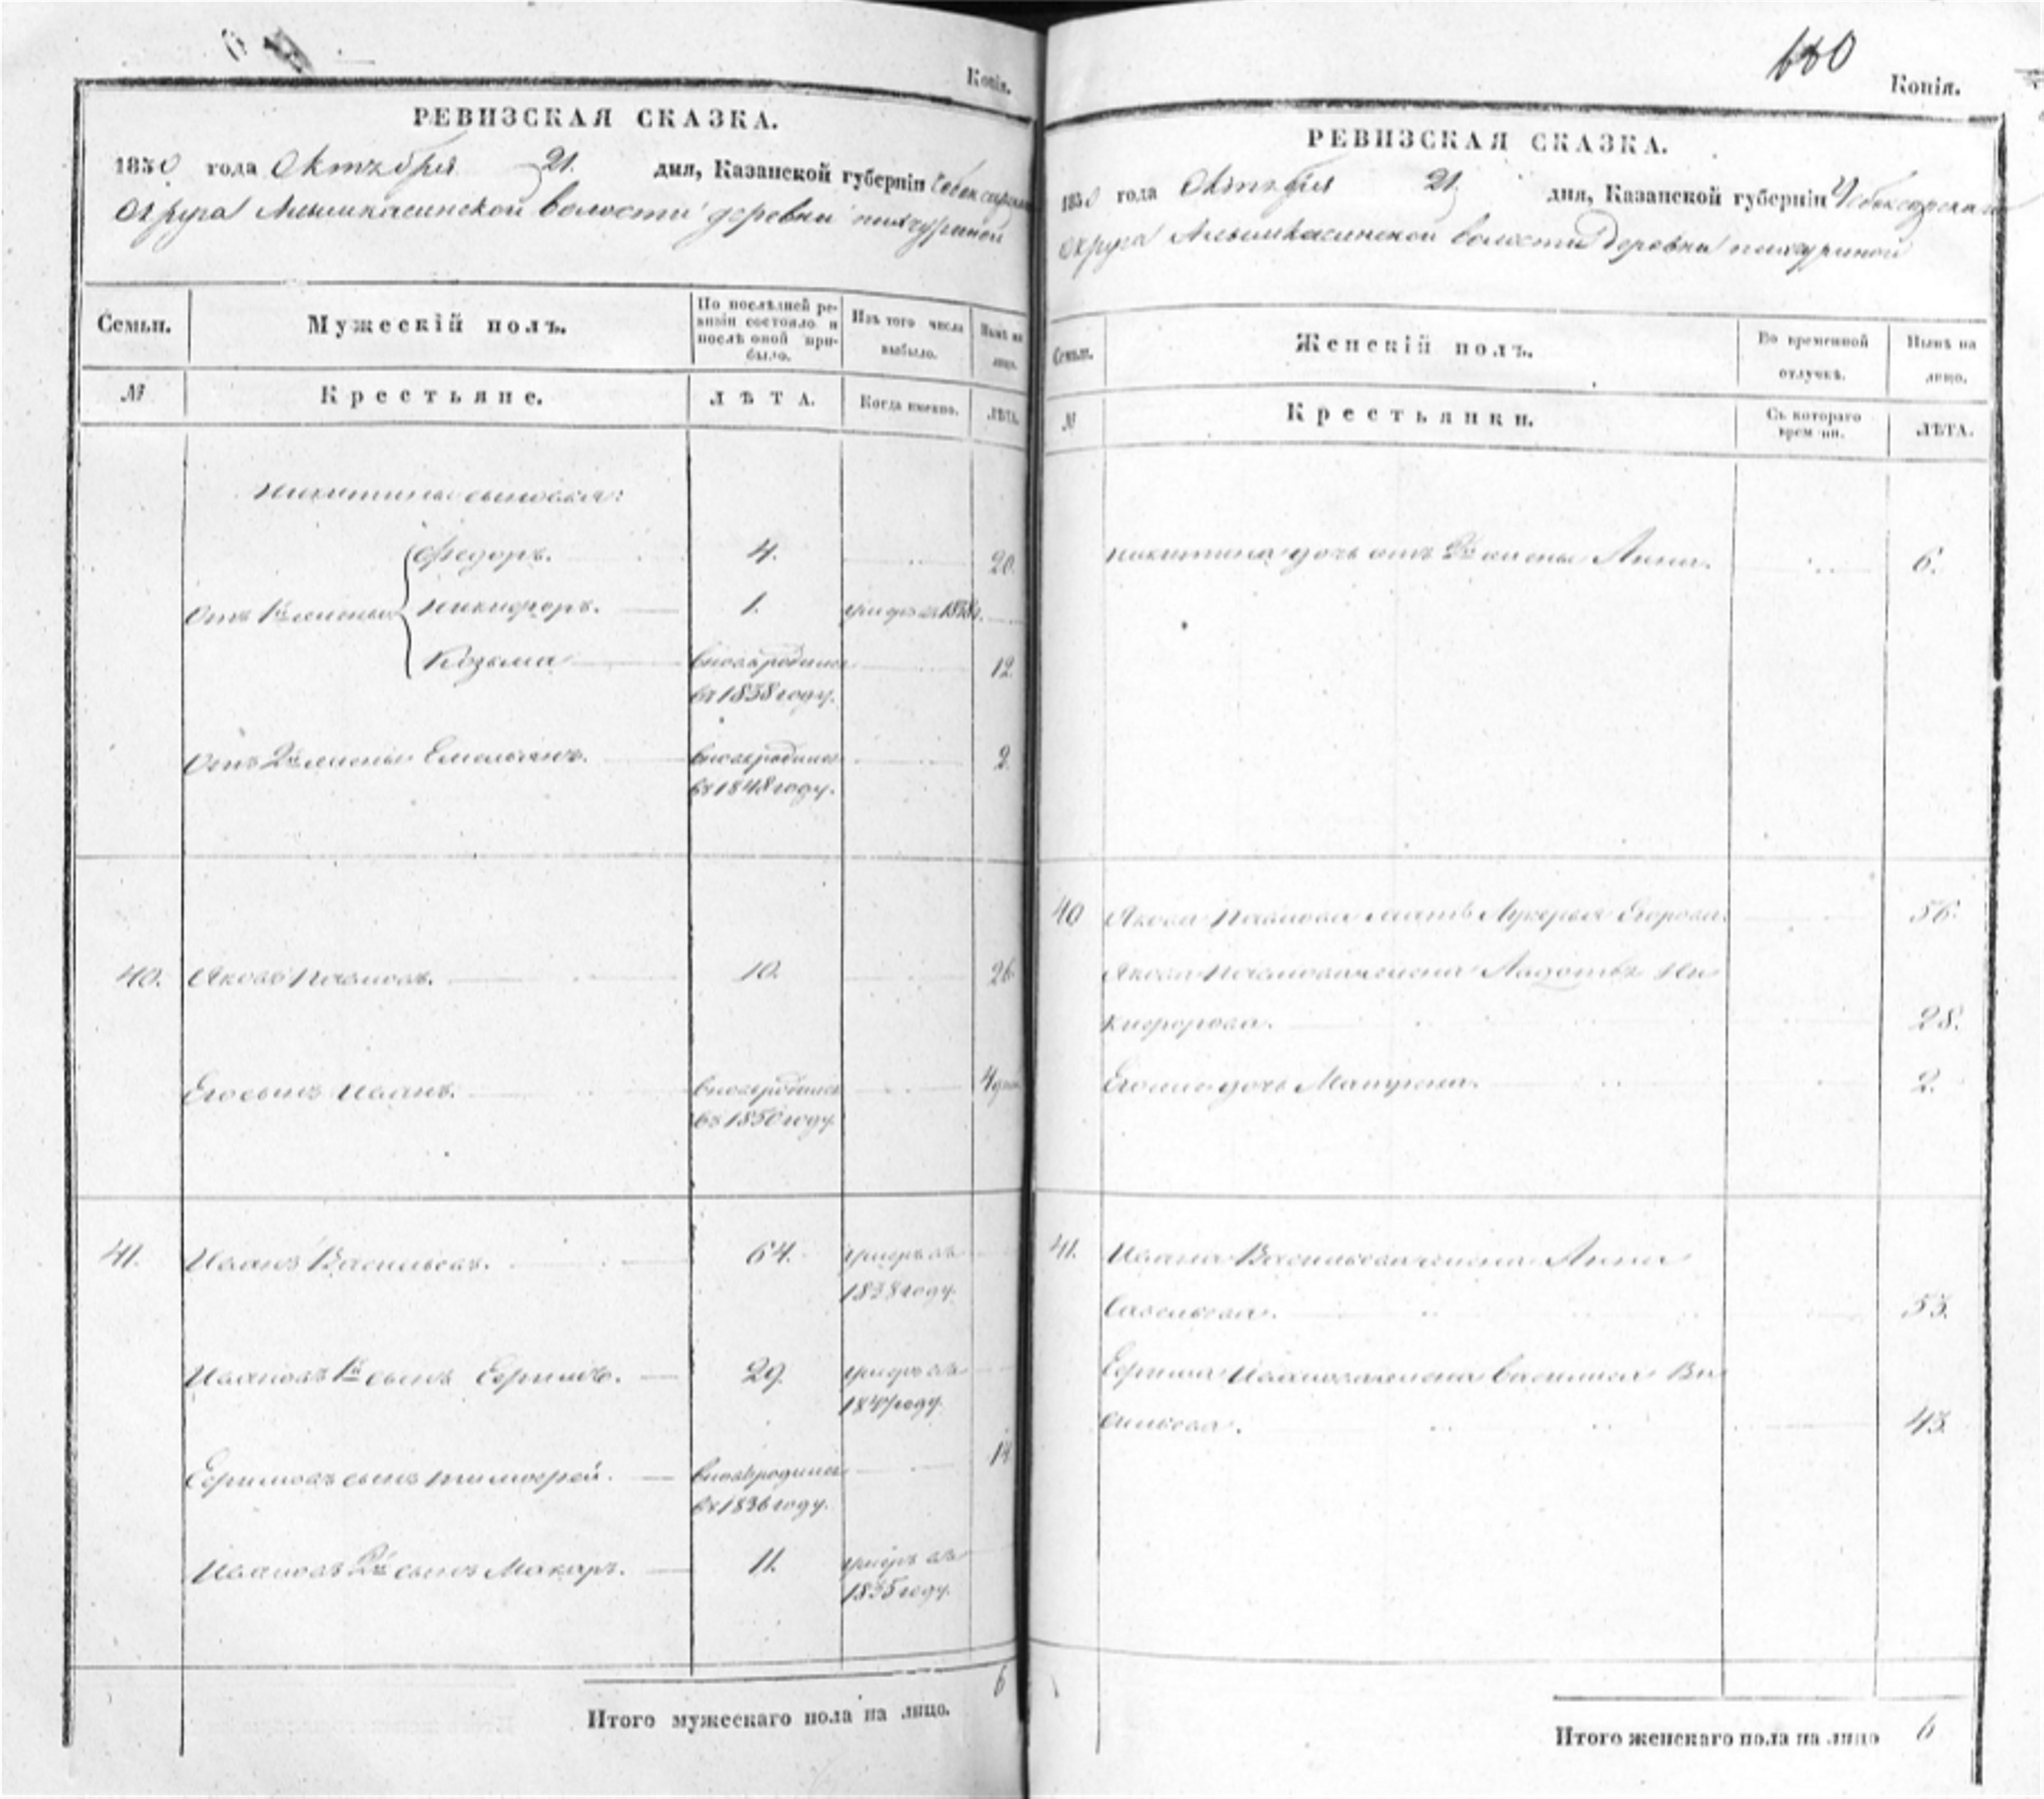 Копія.
РЕВИЗСКАЯ СКАЗКА.
1850 года Октября 21. дня, Казанской губерніи Чебоксарскаго
округа Алымкасинской волости деревни
Семьи.
Мужескій полъ.
По послѣдней ре-
визіи состояло и
послѣ оной при-
было.
Изъ того числа
выбыло.
Нынѣ на
лицо.
№
Крестьяне.
ЛѢТА.
Когда именно.
ЛѢТА.
Никитины сыновья:
Федоръ. 4. 20.
Отъ 1й жены Никифоръ. 1. умеръ въ 1838г.
Козьма послѣ родился 12.
въ 1838 году.
Отъ 2й жены Емельянъ. послѣ родился 2.
въ 1848 году.
40. Яковъ Павловъ. 10. 26.
Его сынъ Иванъ. 4
въ 1850 году.
41. Иванъ Васильевъ. 64. умеръ въ
1838 году.
Ивановъ 1й сынъ Ефимъ. 29. умеръ въ
году.
Ефимовъ сынъ Тимофей. 14
въ 1836 году.
Ивановъ 2й сынъ Макаръ. 11. умеръ въ
1835 году.
Итого мужескаго пола на лицо. 6
680
Копія.
РЕВИЗСКАЯ СКАЗКА.
1850 года Октября 21. дня, Казанской губерніи Чебоксарскаго
округа Алымкасинской волости деревни
Семьи.
Женскій полъ.
Во временной
отлучкѣ.
Нынѣ на
лицо.
№
Крестьянки.
Съ котораго
времени.
ЛѢТА.
Никитина дочь отъ 2й жены Анна. 6.
40 Якова Павлова мать Лукерья Егорова. 56.
Якова Павлова жена Ни
кифорова. 28.
Его дочь Матрена. 2.
41. Ивана Васильева жена Анна
Савельева. 53.
Ефима Иванова жена Василиса Ва
сильева. 43.
Итого женскаго пола на лицо 6